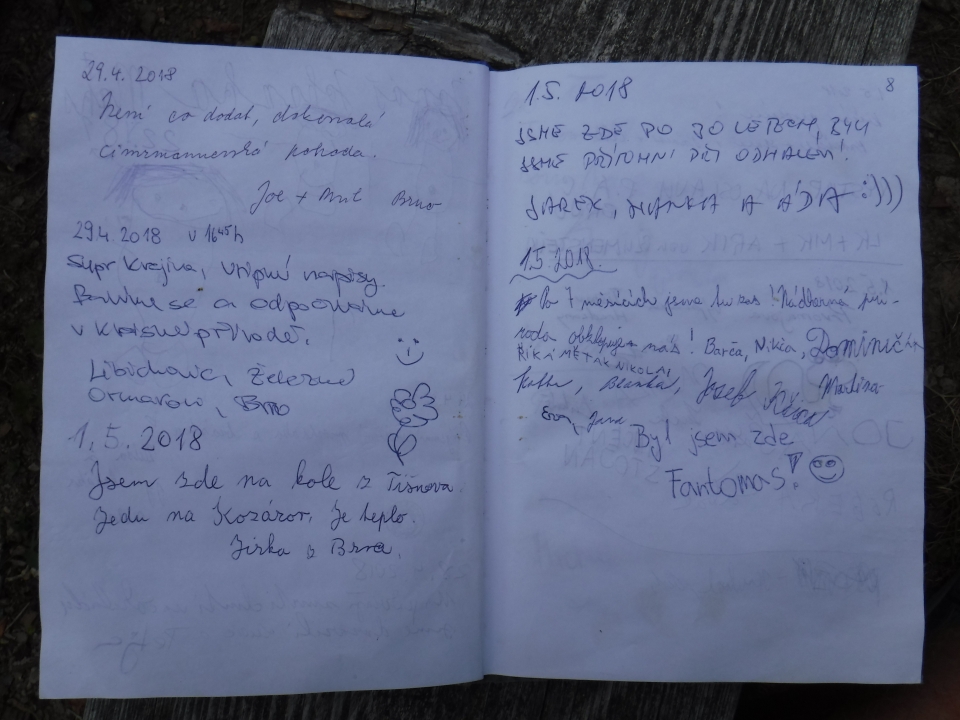 29.4. 2018
Není co dodat, dokonalá
cimrmanovská pohoda.
Joe + Brno
29.4. 2018 v 16⁴⁵h
Supr krajina, vtipné nápisy.
Bavíme se a odpočíváme
v krásné přírodě.
Libichovi, Železné
Brno
1. 5. 2018
Jsem zde na kole z Tišnova.
Jedu na Kozárov. Je teplo.
Jirka z Brna.
8
1.5. 2018
JSME ZDĚ PO 30 LETECH, BYLI
JSME PŘÍTOMNI PŘI ODHALENÍ!
JAREK, HANKA A ÁĎA :)))
1.5. 2018
Po 7 měsících jsme tu zas! Nádherná pří-
roda obklopuje nás! Barča, Nikča, Dominička
ŘÍKÁ MEŤÁK NIKOLAI
Blanka, Josef Martina
Jana
Byl jsem zde
Fantomas!